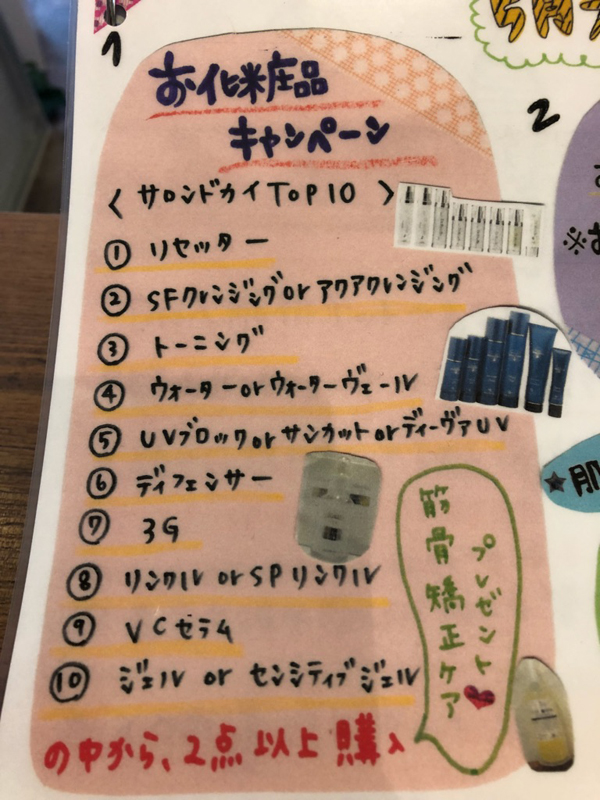 1
お化粧品
キャンペーン
〈サロンドカイTOP10〉
① リセッター
② SFクレンジングorアクアクレンジング
③ トーニング
④ ウォーターorウォーターヴェール
⑤ UVブロックorサンカットorディーヴァUV
⑥ ディフェンサー
⑦ 3G
⑧ リンクル or SPリンクル
⑨ VCセラム
⑩ ジェル or センシティブジェル
の中から、2点以上購入
プレゼント
筋骨矯正ケア
2
※お
★肌